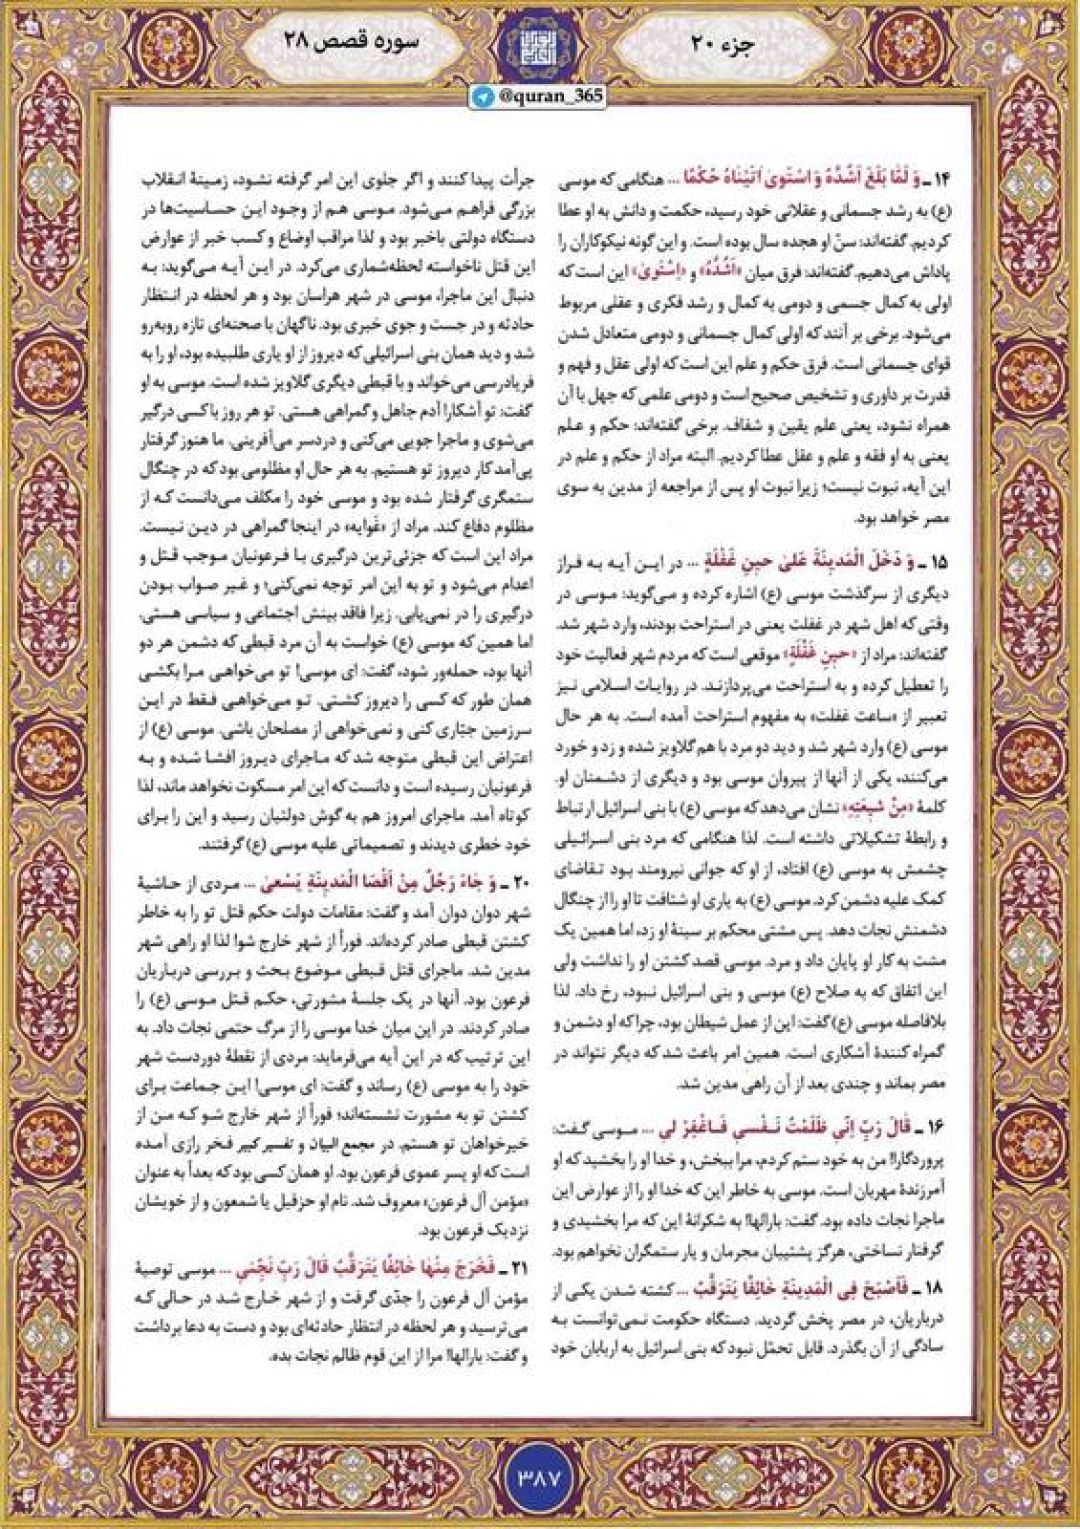 جزء ۲۰
سوره قصص ۲۸
@quran_365
۱۴ ـ وَ لَمّٰا بَلَغَ اَشُدَّهُ وَ اسْتَوىٰ اٰتَيْنٰاهُ حُكْمًا ... هنگامی که موسی
(ع) به رشد جسمانی و عقلانی خود رسید، حکمت و دانش به او عطا
کردیم. گفته‌اند: سنّ او هجده سال بوده است. و این گونه نیکوکاران را
پاداش می‌دهیم. گفته‌اند: فرق میان «اَشُدَّهُ» و «اِسْتَوىٰ» این است که
اولی به کمال جسمی و دومی به کمال و رشد فکری و عقلی مربوط
می‌شود. برخی بر آنند که اولی کمال جسمانی و دومی متعادل شدن
قوای جسمانی است. فرق حکم و علم این است که اولی عقل و فهم و
قدرت بر داوری و تشخیص صحیح است و دومی علمی که جهل با آن
همراه نشود، یعنی علم یقین و شفاف. برخی گفته‌اند: حکم و علم
یعنی به او فقه و علم و عقل عطا کردیم. البته مراد از حکم و علم در
این آیه، نبوت نیست؛ زیرا نبوت او پس از مراجعه از مدین به سوی
مصر خواهد بود.
۱۵ ـ وَ دَخَلَ الْمَدينَةَ عَلىٰ حينِ غَفْلَةٍ ... در این آیه به فراز
دیگری از سرگذشت موسی (ع) اشاره کرده و می‌گوید: موسی در
وقتی که اهل شهر در غفلت یعنی در استراحت بودند، وارد شهر شد.
گفته‌اند: مراد از «حينِ غَفْلَةٍ» موقعی است که مردم شهر فعالیت خود
را تعطیل کرده و به استراحت می‌پردازند. در روایات اسلامی نیز
تعبیر از «ساعت غفلت» به مفهوم استراحت آمده است. به هر حال
موسی (ع) وارد شهر شد و دید دو مرد با هم گلاویز شده و زد و خورد
می‌کنند، یکی از آنها از پیروان موسی بود و دیگری از دشمنان او.
کلمهٔ «مِنْ شيعَتِهِ» نشان می‌دهد که موسی (ع) با بنی اسرائیل ارتباط
و رابطهٔ تشکیلاتی داشته است. لذا هنگامی که مرد بنی اسرائیلی
چشمش به موسی (ع) افتاد، از او که جوانی نیرومند بود تقاضای
کمک علیه دشمن کرد. موسی (ع) به یاری او شتافت تا او را از چنگال
دشمنش نجات دهد. پس مشتی محکم بر سینهٔ او زد، اما همین یک
مشت به کار او پایان داد و مرد. موسی قصد کشتن او را نداشت ولی
این اتفاق که به صلاح (ع) موسی و بنی اسرائیل نبود، رخ داد. لذا
بلافاصله موسی (ع) گفت: این از عمل شیطان بود، چرا که او دشمن و
گمراه کنندهٔ آشکاری است. همین امر باعث شد که دیگر نتواند در
مصر بماند و چندی بعد از آن راهی مدین شد.
۱۶ ـ قٰالَ رَبِّ اِنّي ظَلَمْتُ نَفْسي فَاغْفِرْ لي ... موسی گفت:
پروردگارا! من به خود ستم کردم، مرا ببخش، و خدا او را بخشید که او
آمرزندهٔ مهربان است. موسی به خاطر این که خدا او را از عوارض این
ماجرا نجات داده بود. گفت: بارالها! به شکرانهٔ این که مرا بخشیدی و
گرفتار نساختی، هرگز پشتیبان مجرمان و یار ستمگران نخواهم بود.
۱۸ ـ فَاَصْبَحَ فِي الْمَدينَةِ خٰائِفًا يَتَرَقَّبُ ... کشته شدن یکی از
درباریان، در مصر پخش گردید. دستگاه حکومت نمی‌توانست به
سادگی از آن بگذرد. قابل تحمّل نبود که بنی اسرائیل به اربابان خود
جرأت پیدا کنند و اگر جلوی این امر گرفته نشود، زمینهٔ انقلاب
بزرگی فراهم می‌شود. موسی هم از وجود این حساسیت‌ها در
دستگاه دولتی باخبر بود و لذا مراقب اوضاع و کسب خبر از عوارض
این قتل ناخواسته لحظه‌شماری می‌کرد. در این آیه می‌گوید: به
دنبال این ماجرا، موسی در شهر هراسان بود و هر لحظه در انتظار
حادثه و در جست و جوی خبری بود. ناگهان با صحنه‌ای تازه روبه‌رو
شد و دید همان بنی اسرائیلی که دیروز از او یاری طلبیده بود، او را به
فریادرسی می‌خواند و با قبطی دیگری گلاویز شده است. موسی به او
گفت: تو آشکارا آدم جاهل و گمراهی هستی. تو هر روز با کسی درگیر
می‌شوی و ماجرا جویی می‌کنی و دردسر می‌آفرینی. ما هنوز گرفتار
پی‌آمد کار دیروز تو هستیم. به هر حال او مظلومی بود که در چنگال
ستمگری گرفتار شده بود و موسی خود را مکلف می‌دانست که از
مظلوم دفاع کند. مراد از «غوایه» در اینجا گمراهی در دین نیست.
مراد این است که جزئی‌ترین درگیری با فرعونیان موجب قتل و
اعدام می‌شود و تو به این امر توجه نمی‌کنی؛ و غیر صواب بودن
درگیری را در نمی‌یابی. زیرا فاقد بینش اجتماعی و سیاسی هستی.
اما همین که موسی (ع) خواست به آن مرد قبطی که دشمن هر دو
آنها بود، حمله‌ور شود، گفت: ای موسی! تو می‌خواهی مرا بکشی
همان طور که کسی را دیروز کشتی. تو می‌خواهی فقط در این
سرزمین جبّاری کنی و نمی‌خواهی از مصلحان باشی. موسی (ع) از
اعتراض این قبطی متوجه شد که ماجرای دیروز افشا شده و به
فرعونیان رسیده است و دانست که این امر مسکوت نخواهد ماند، لذا
کوتاه آمد. ماجرای امروز هم به گوش دولتیان رسید و این را برای
خود خطری دیدند و تصمیماتی علیه موسی (ع) گرفتند.
۲۰ ـ وَ جٰاءَ رَجُلٌ مِنْ اَقْصَا الْمَدينَةِ يَسْعىٰ ... مردی از حاشیهٔ
شهر دوان دوان آمد و گفت: مقامات دولت حکم قتل تو را به خاطر
کشتن قبطی صادر کرده‌اند. فوراً از شهر خارج شو! لذا او راهی شهر
مدین شد. ماجرای قتل قبطی موضوع بحث و بررسی درباریان
فرعون بود. آنها در یک جلسهٔ مشورتی، حکم قتل موسی (ع) را
صادر کردند. در این میان خدا موسی را از مرگ حتمی نجات داد. به
این ترتیب که در این آیه می‌فرماید: مردی از نقطهٔ دوردست شهر
خود را به موسی (ع) رساند و گفت: ای موسی! این جماعت برای
کشتن تو به مشورت نشسته‌اند؛ فوراً از شهر خارج شو که من از
خیرخواهان تو هستم. در مجمع البیان و تفسیر کبیر فخر رازی آمده
است که او پسر عموی فرعون بود. او همان کسی بود که بعداً به عنوان
«مؤمن آل فرعون» معروف شد. نام او حزقیل یا شمعون و از خویشان
نزدیک فرعون بود.
۲۱ ـ فَخَرَجَ مِنْهٰا خٰائِفًا يَتَرَقَّبُ قٰالَ رَبِّ نَجِّني ... موسی توصیهٔ
مؤمن آل فرعون را جدّی گرفت و از شهر خارج شد در حالی که
می‌ترسید و هر لحظه در انتظار حادثه‌ای بود و دست به دعا برداشت
و گفت: بارالها! مرا از این قوم ظالم نجات بده.
۳۸۷